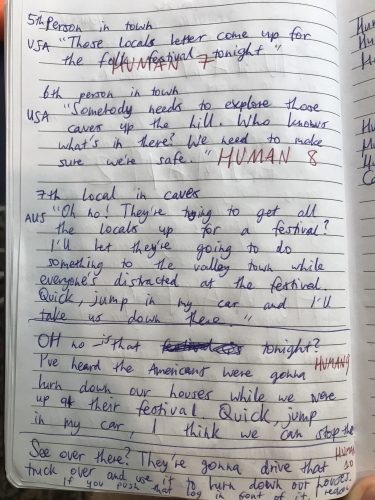 5th Person in town
USA "Those locals better come up for
the folk festival tonight"
HUMAN 7
6th person in town
USA "Somebody needs to explore those
caves up the hill. Who knows
what's in there? We need to make
sure we're safe." HUMAN 8
7th local in caves
AUS "Oh no! They're trying to get all
the locals up for a festival?
I'll bet they're going to do
something to the valley town while
everyone's distracted at the festival.
Quick, jump in my car and I'll
take us down there."
OH no - is that tonight?
I've heard the Americans were gonna HUMAN 9
burn down our houses while we were
up at their festival Quick, jump
in my car, I think we can stop the
See over there? They're gonna drive that HUMAN 10
truck over and use it to burn down our houses.
If you push that log in front of it